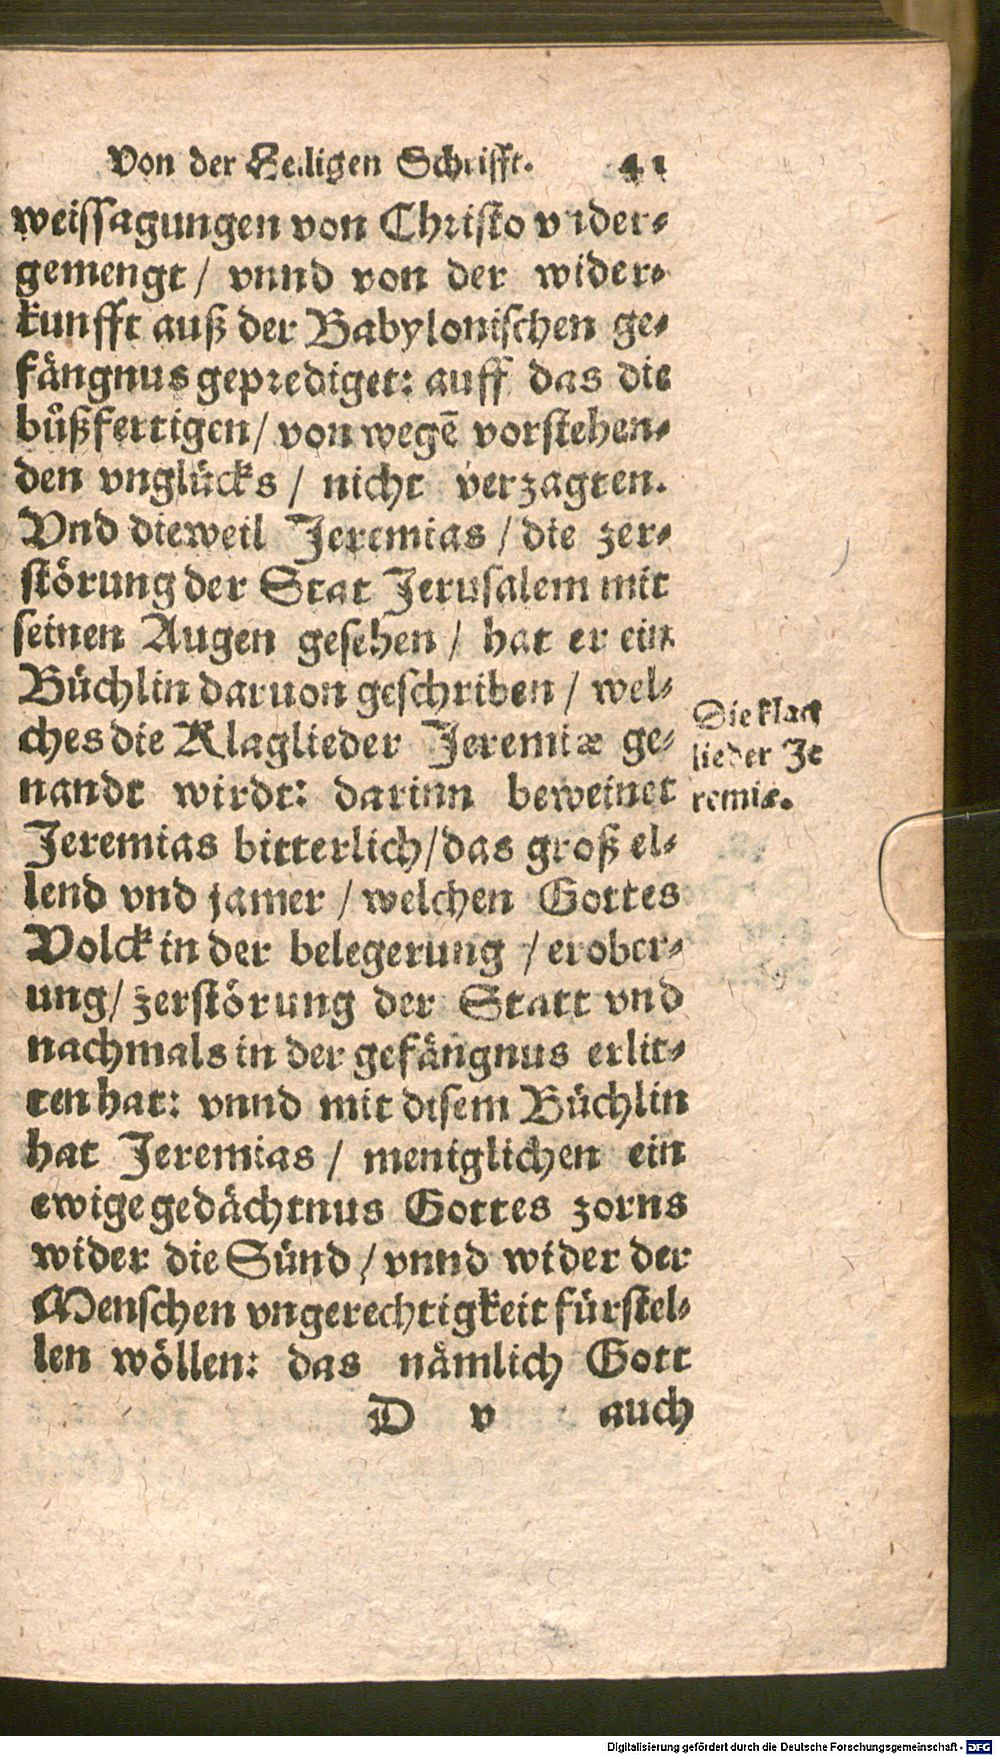 Von der Heiligen Schrifft. 41
weissagungen von Christo vnder-
gemengt / vnnd von der wider-
kunfft auß der Babylonischen ge-
fängnus geprediget: auff das die
bůßfertigen / von wegē vorstehen-
den vnglücks / nicht verzagten.
Vnd dieweil Jeremias / die zer-
störung der Stat Jerusalem mit
seinen Augen gesehen / hat er ein
Büchlin daruon geschriben / wel-
ches die Klaglieder Jeremiæ ge-
nandt wirdt: darinn beweinet
Jeremias bitterlich / das groß el-
lend vnd jamer / welchen Gottes
Volck in der belegerung / erober-
ung / zerstörung der Statt vnd
nachmals in der gefängnus erlit-
ten hat: vnnd mit disem Büchlin
hat Jeremias / meniglichen ein
ewige gedächtnus Gottes zorns
wider die Sünd / vnnd wider der
Menschen vngerechtigkeit fürstel-
len wöllen: das nämlich Gott
D v auch
Die klag
lieder Je
remiæ.
Digitalisierung gefördert durch die Deutsche Forschungsgemeinschaft - DFG